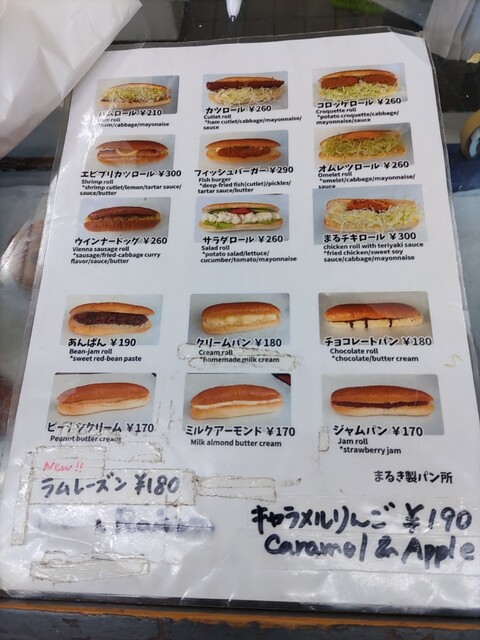 ハムロール ¥210
Ham roll
*ham/cabbage/mayonnaise
カツロール ¥260
Cutlet roll
*ham cutlet/cabbage/mayonnaise/
sauce
コロッケロール ¥260
Croquette roll
*potato croquette/cabbage/
mayonnaise/sauce
エビプリカツロール ¥300
Shrimp roll
*shrimp cutlet/lemon/tartar sauce/
sauce/butter
フィッシュバーガー ¥290
Fish burger
*deep-fried fish(cutlet)/pickles/
tartar sauce/butter
オムレツロール ¥260
Omelet roll
*omelet/cabbage/mayonnaise/
sauce
ウインナードッグ ¥260
Vienna sausage roll
*sausage/fried-cabbage curry
flavor/sauce/butter
サラダロール ¥260
Salad roll
*potato salad/lettuce/
cucumber/tomato/mayonnaise
まるチキロール ¥300
chicken roll with teriyaki sauce
*fried chicken/sweet soy
sauce/cabbage/mayonnaise
あんぱん ¥190
Bean-jam roll
*sweet red-bean paste
クリームパン ¥180
Cream roll
*homemade milk cream
チョコレートパン ¥180
Chocolate roll
*chocolate/butter cream
ピーナツクリーム ¥170
Peanut butter cream
ミルクアーモンド ¥170
Milk almond butter cream
ジャムパン ¥170
Jam roll
*strawberry jam
New!!
ラムレーズン ¥180
まるき製パン所
キャラメルりんご ¥190
Caramel & Apple